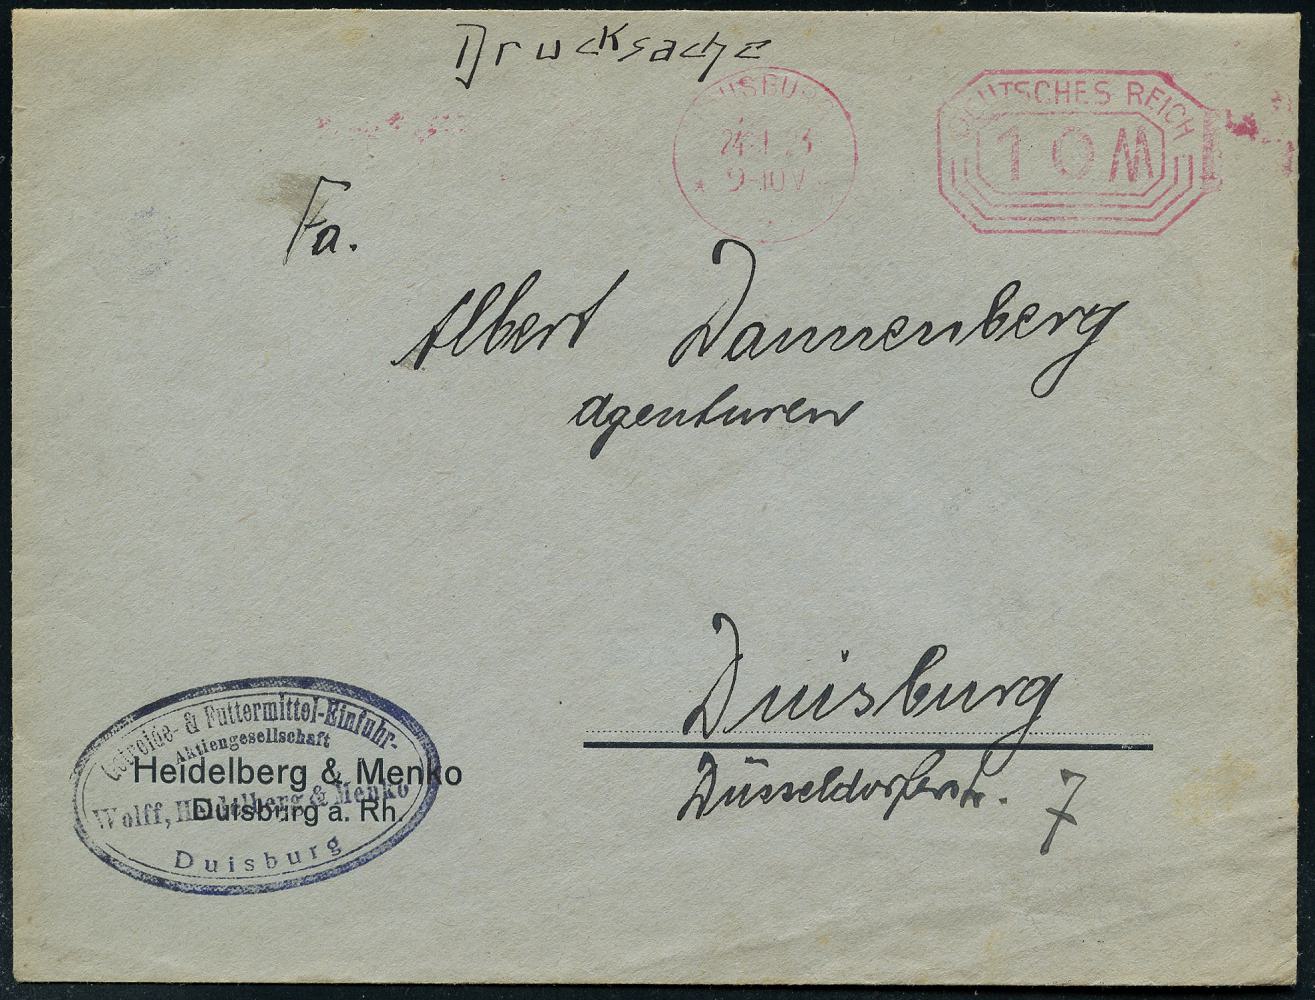 Drucksache
DUISBURG
24.1.23
9-10V
DEUTSCHES REICH
10M
Fa.
Albert Dannenberg
Agenturen
Duisburg
Düsseldorferstr. 7
Getreide- & Futtermittel-Einfuhr-
Aktiengesellschaft
Heidelberg & Menko
Wolff, Heidelberg & Menko
Duisburg a. Rh.
Duisburg